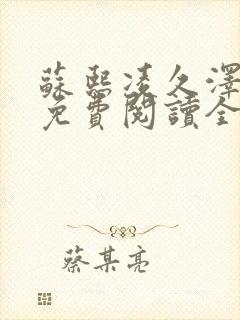 蘇熙凌久澤
免費閱讀全
蔡某亮